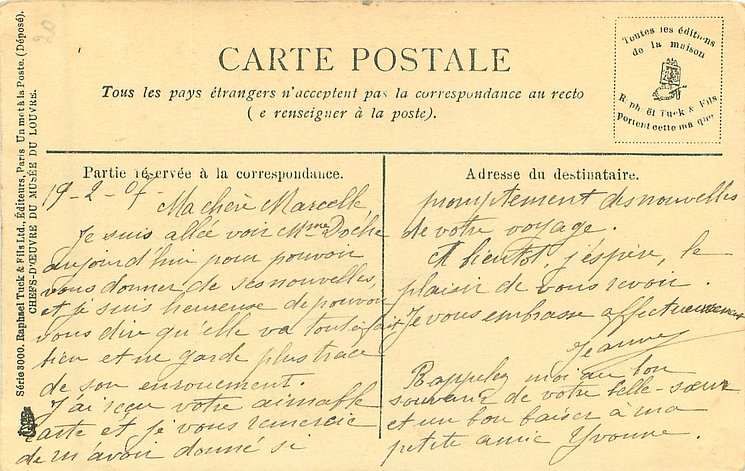 Série 3000. Raphael Tuck & Fils Ltd., Éditeurs, Paris Un mot à la Poste. (Déposé).
CHEFS-D'ŒUVRE DU MUSÉE DU LOUVRE.
20
CARTE POSTALE
Tous les pays étrangers n'acceptent pas la correspondance au recto
( e renseigner à la poste).
Toutes les éditions
de la maison
R ph. ët Tuck & Fils
portent cette ma que
Partie réservée à la correspondance.
19-2-07-
Ma chère Marcelle
Je suis allée voir Mme Doche
aujourd'hui pour pouvoir
vous donner de ses nouvelles,
et je suis heureuse de pouvoir
vous dire qu'elle va tout à fait
bien et ne garde plus trace
de son enrouement.
J'ai reçu votre aimable
carte et je vous remercie
de m'avoir donné si
Adresse du destinataire.
promptement des nouvelles
de votre voyage.
A bientôt, j'espère, le
plaisir de vous revoir.
Je vous embrasse affectueusement
Jeanne
Rappelez moi au bon
souvenir de votre belle-sœur
et un bon baiser à ma
petite amie Yvonne.